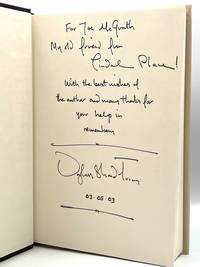 For Joe McGrath
My old friend from
Place!
With the best wishes of
the author and many thanks for
your help in
remembering
03.05.03